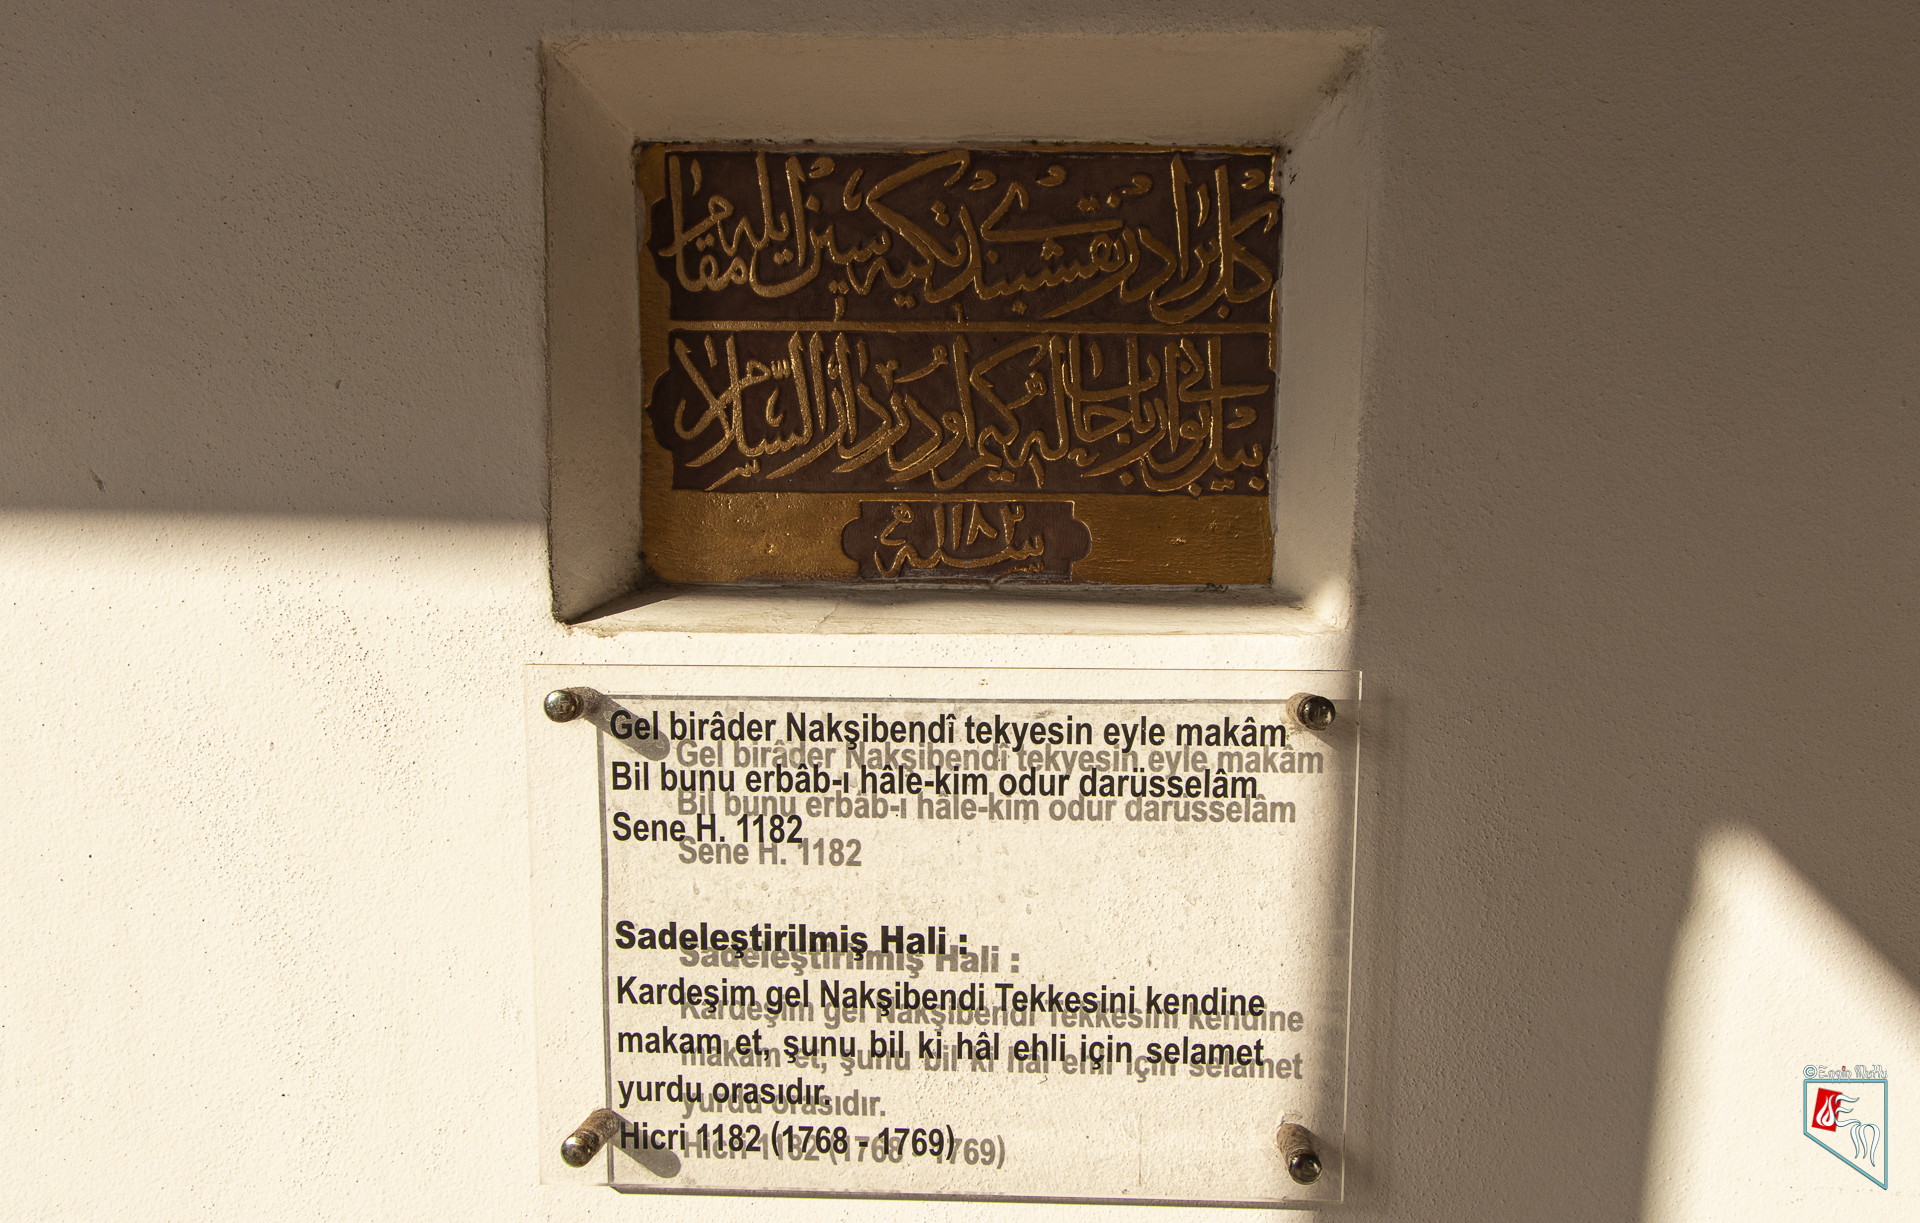 كل برادر نقشبندی تکیه سین ایله مقام
بیل بونی ارباب حاله کیم اودر دار السلام
سنه ١١٨٢
Gel birâder Nakşibendî tekyesin eyle makâm
Bil bunu erbâb-ı hâle-kim odur darüsselâm
Sene H. 1182
Sadeleştirilmiş Hali :
Kardeşim gel Nakşibendi Tekkesini kendine
makam et, şunu bil ki hâl ehli için selamet
yurdu orasıdır.
Hicri 1182 (1768 - 1769)